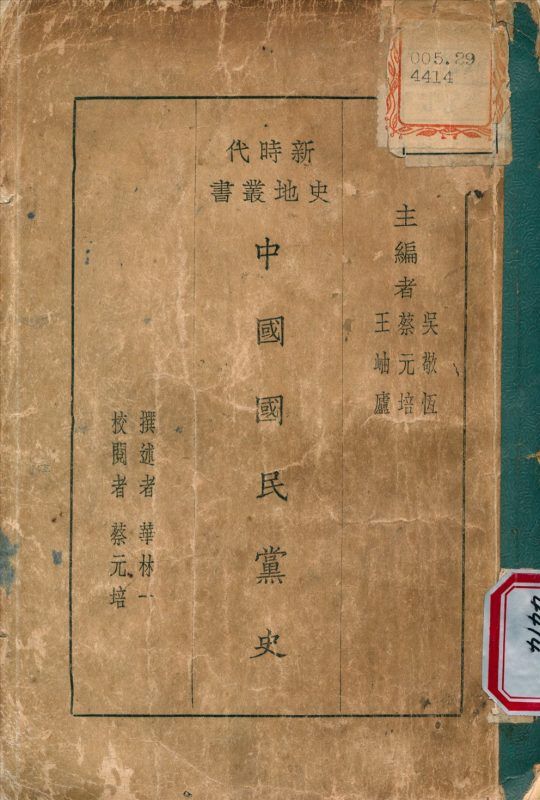 005.29
4414
新時代
史地叢書
主編者
吳敬恆
蔡元培
王岫廬
中國國民黨史
撰述者 華林一
校閱者 蔡元培
4414